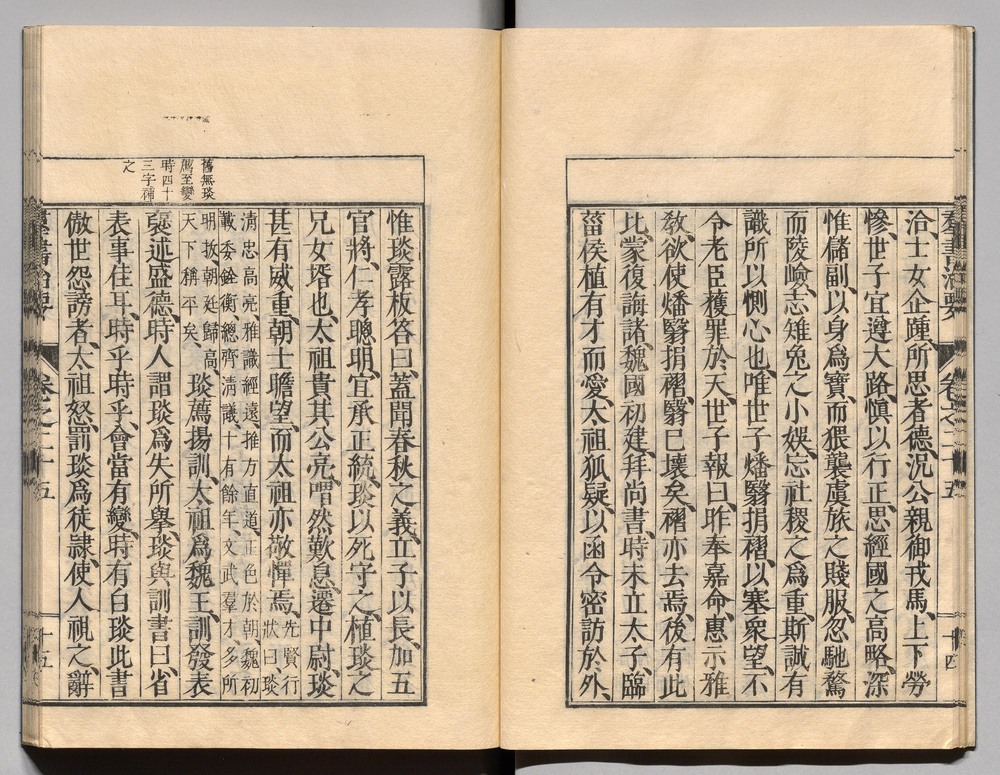 羣書治要 卷之二十五 十四
洽、士女企踵、所思者德、況公親御戎馬、上下勞
慘、世子宜遵大路、愼以行正、思經國之高略、深
惟儲副、以身爲寶、而猥襲虞旅之賤服、忽馳騖
而陵嶮、志雉兔之小娛、忘社稷之爲重、斯誠有
識所以惻心也、唯世子燔翳捐褶、以塞衆望、不
令老臣獲罪於天、世子報曰、昨奉嘉命、惠示雅
敎、欲使燔翳捐褶、翳已壞矣、褶亦去焉、後有此
比、蒙復誨諸、魏國初建、拜尚書、時未立太子、臨
菑侯植有才而愛、太祖狐疑、以函令密訪於外、
惟琰露板答曰、蓋聞春秋之義、立子以長、加五
官將、仁孝聰明、宜承正統、琰以死守之、植琰之
兄女壻也、太祖貴其公亮、喟然歎息、遷中尉、琰
甚有威重、朝士瞻望、而太祖亦敬憚焉、先賢行狀曰琰
清忠高亮、雅識經遠、推方直道、正色於朝、魏初
載委銓衡、總齊清議、十有餘年、文武羣才、多所
明拔、朝廷歸高、
天下稱平矣、
琰薦揚訓、太祖爲魏王、訓發表
褒述盛德、時人謂琰爲失所舉、琰與訓書曰、省
表事佳耳、時乎時乎、會當有變、時有白琰此書
傲世怨謗者、太祖怒、罰琰爲徒隷、使人視之、辭
舊無琰
薦至變
時四十
三字補
之
羣書治要 卷之二十五 十五